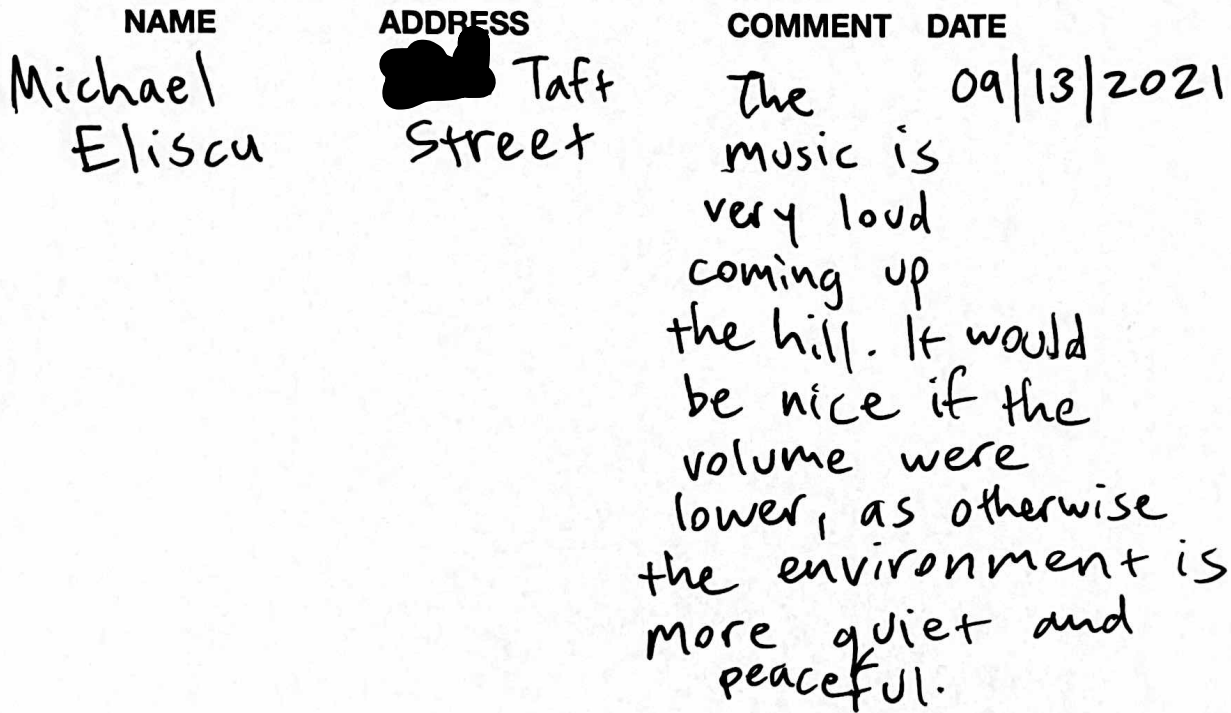 NAME ADDRESS COMMENT DATE
Michael Taft The 09/13/2021
Eliscu Street music is
very loud
coming up
the hill. It would
be nice if the
volume were
lower, as otherwise
the environment is
more quiet and
peaceful.